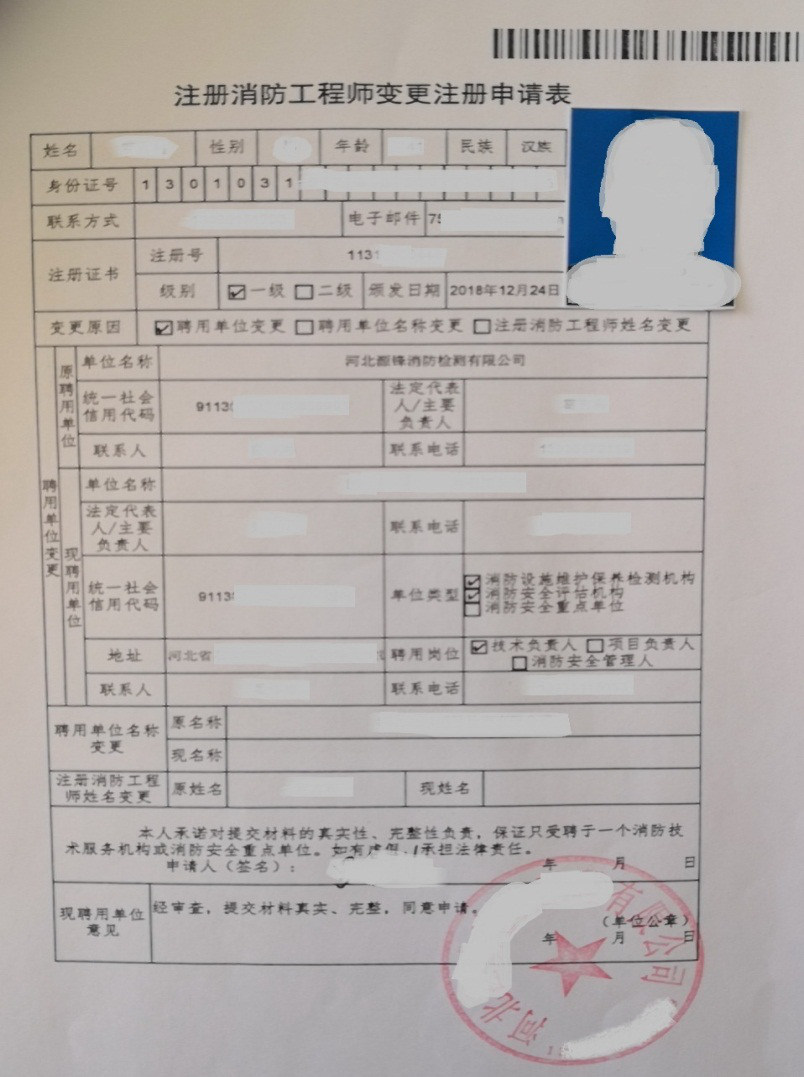 注册消防工程师变更注册申请表
姓名 性别 年龄 民族 汉族
身份证号 1301031
联系方式 电子邮件 75
注册证书 注册号 1131
级别 ☑一级 □二级 颁发日期 2018年12月24日
变更原因 ☑聘用单位变更 □聘用单位名称变更 □注册消防工程师姓名变更
聘用单位变更
原聘用单位
单位名称 河北源锋消防检测有限公司
统一社会信用代码 9113 法定代表人/主要负责人
联系人 联系电话
现聘用单位
单位名称
法定代表人/主要负责人 联系电话
统一社会信用代码 9113 单位类型 ☑消防设施维护保养检测机构
☑消防安全评估机构
□消防安全重点单位
地址 河北省 聘用岗位 ☑技术负责人 □项目负责人
□消防安全管理人
联系人 联系电话
聘用单位名称变更 原名称
现名称
注册消防工程师姓名变更 原姓名 现姓名
本人承诺对提交材料的真实性、完整性负责，保证只受聘于一个消防技
术服务机构或消防安全重点单位。如有虚假,承担法律责任。
申请人（签名）： 年 月 日
现聘用单位意见 经审查，提交材料真实、完整，同意申请。
（单位公章）
年 月 日
河北 有限公司